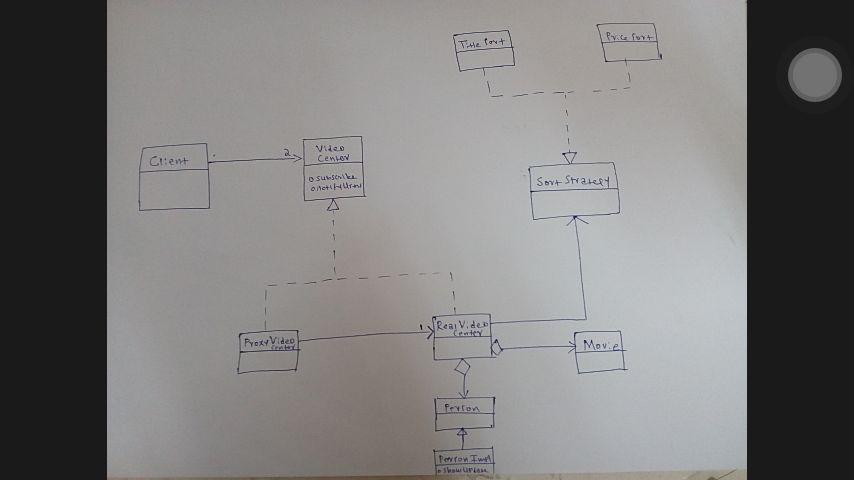 Title Sort
Price Sort
Client
2
Video
Center
o subscribe
o notifyUsers
Sort Strategy
ProxyVideo
Center
1
RealVideo
Center
Movie
Person
Person Impl
o showUpdate